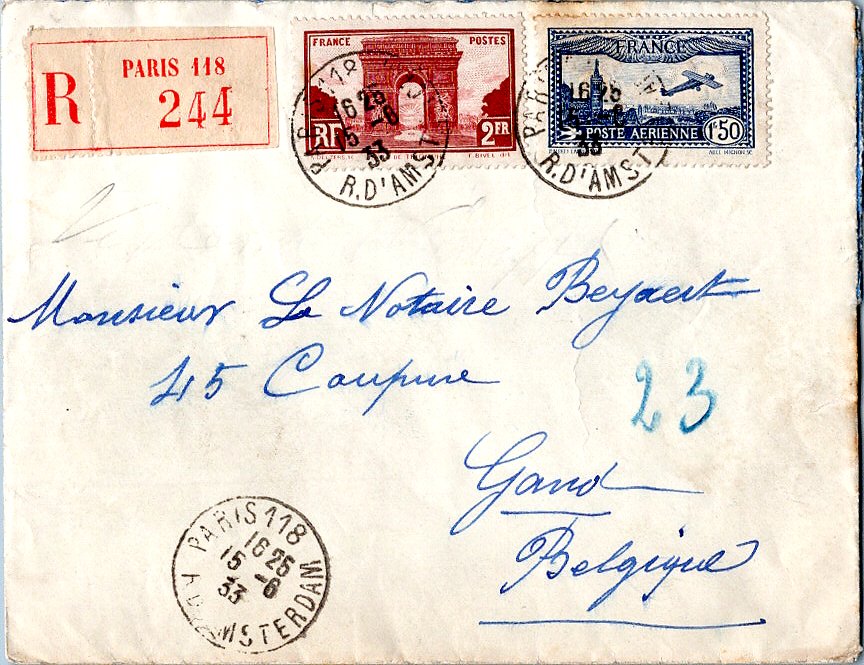 R
PARIS 118
244
FRANCE POSTES
RF
2FR
FRANCE
POSTE AÉRIENNE
1F50
PARIS 118
16 25
15 -6
33
R. D'AMST
PAR
16 25
15 -6
33
R. D'AMST
Monsieur Le Notaire Beyaert
45 Coupure
23
Gand
Belgique
PARIS 118
16 25
15 -6
33
R. D'AMSTERDAM